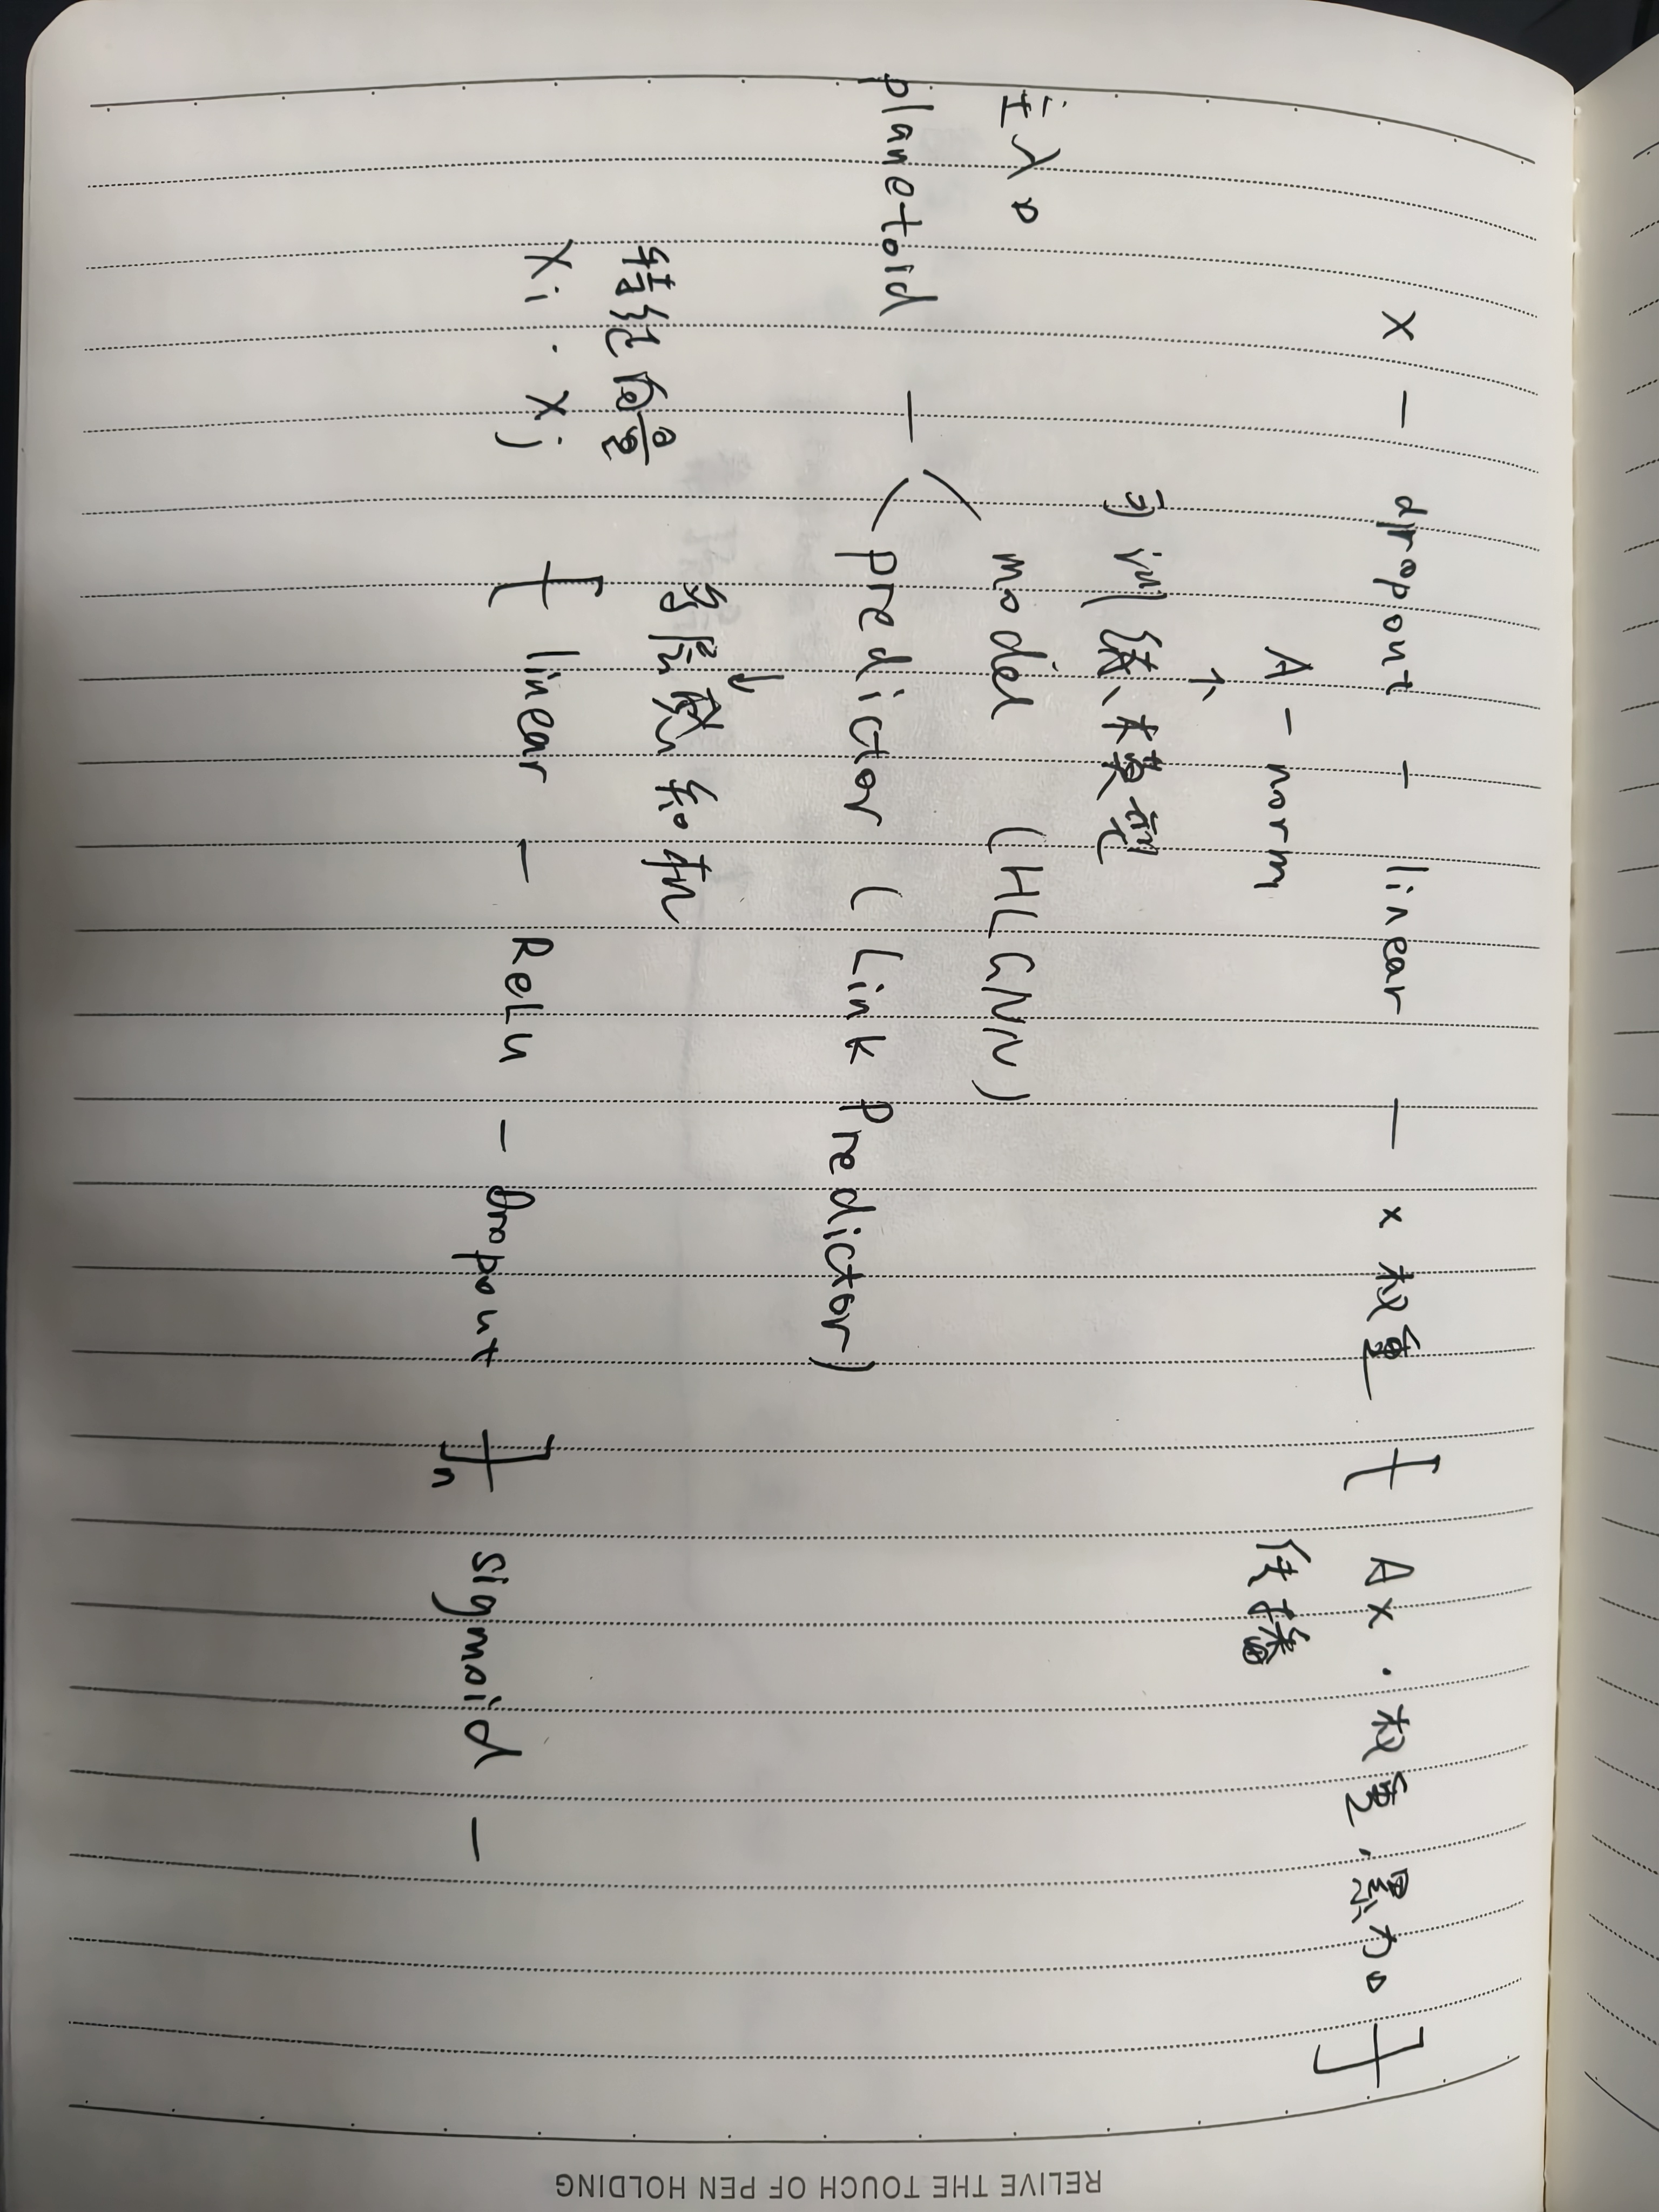 X — dropout — linear — x 权重 —[ Ax · 权重 , 累加 ]—
A - norm 传播
↑
可训练模型
主入口 model (HLGNN)
planetoid — predictor (Link Predictor)
↓
向量 多层感知机
Xi · Xj —[ linear — Relu — Dropout ]—n sigmoid —
RELIVE THE TOUCH OF PEN HOLDING